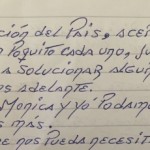 ción del País, acei
n Poquito cada uno, ju
a solucionar algun
os adelante.
Monica y yó Podamo
s más.
e nos pueda necesit